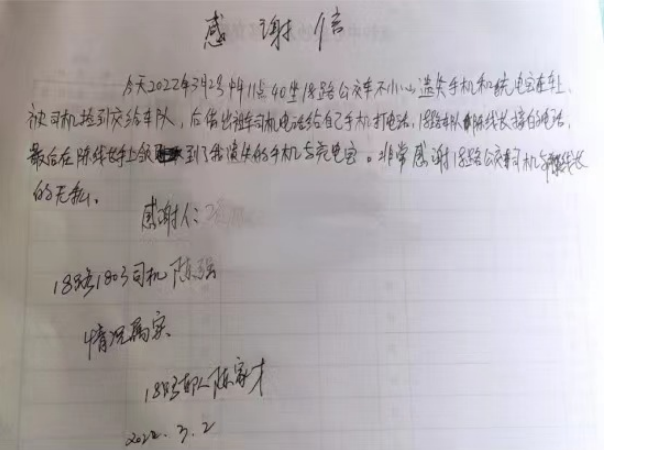 感谢信
今天2022年3月2号中11点40坐18路公交车不小心遗失手机和充电宝在车上,
被司机捡到交给车队,后借出租车司机电话给自己手机打电话,18路车队陈线长接的电话,
最后在陈线长手上领到了我遗失的手机与充电宝。非常感谢18路公交车司机与陈线长
的无私。
感谢人:
18路1803司机陈强
情况属实
18路队陈家才
2022.3.2